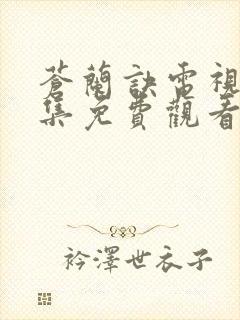 蒼蘭訣電視
集免費觀看
衿澤世衣子